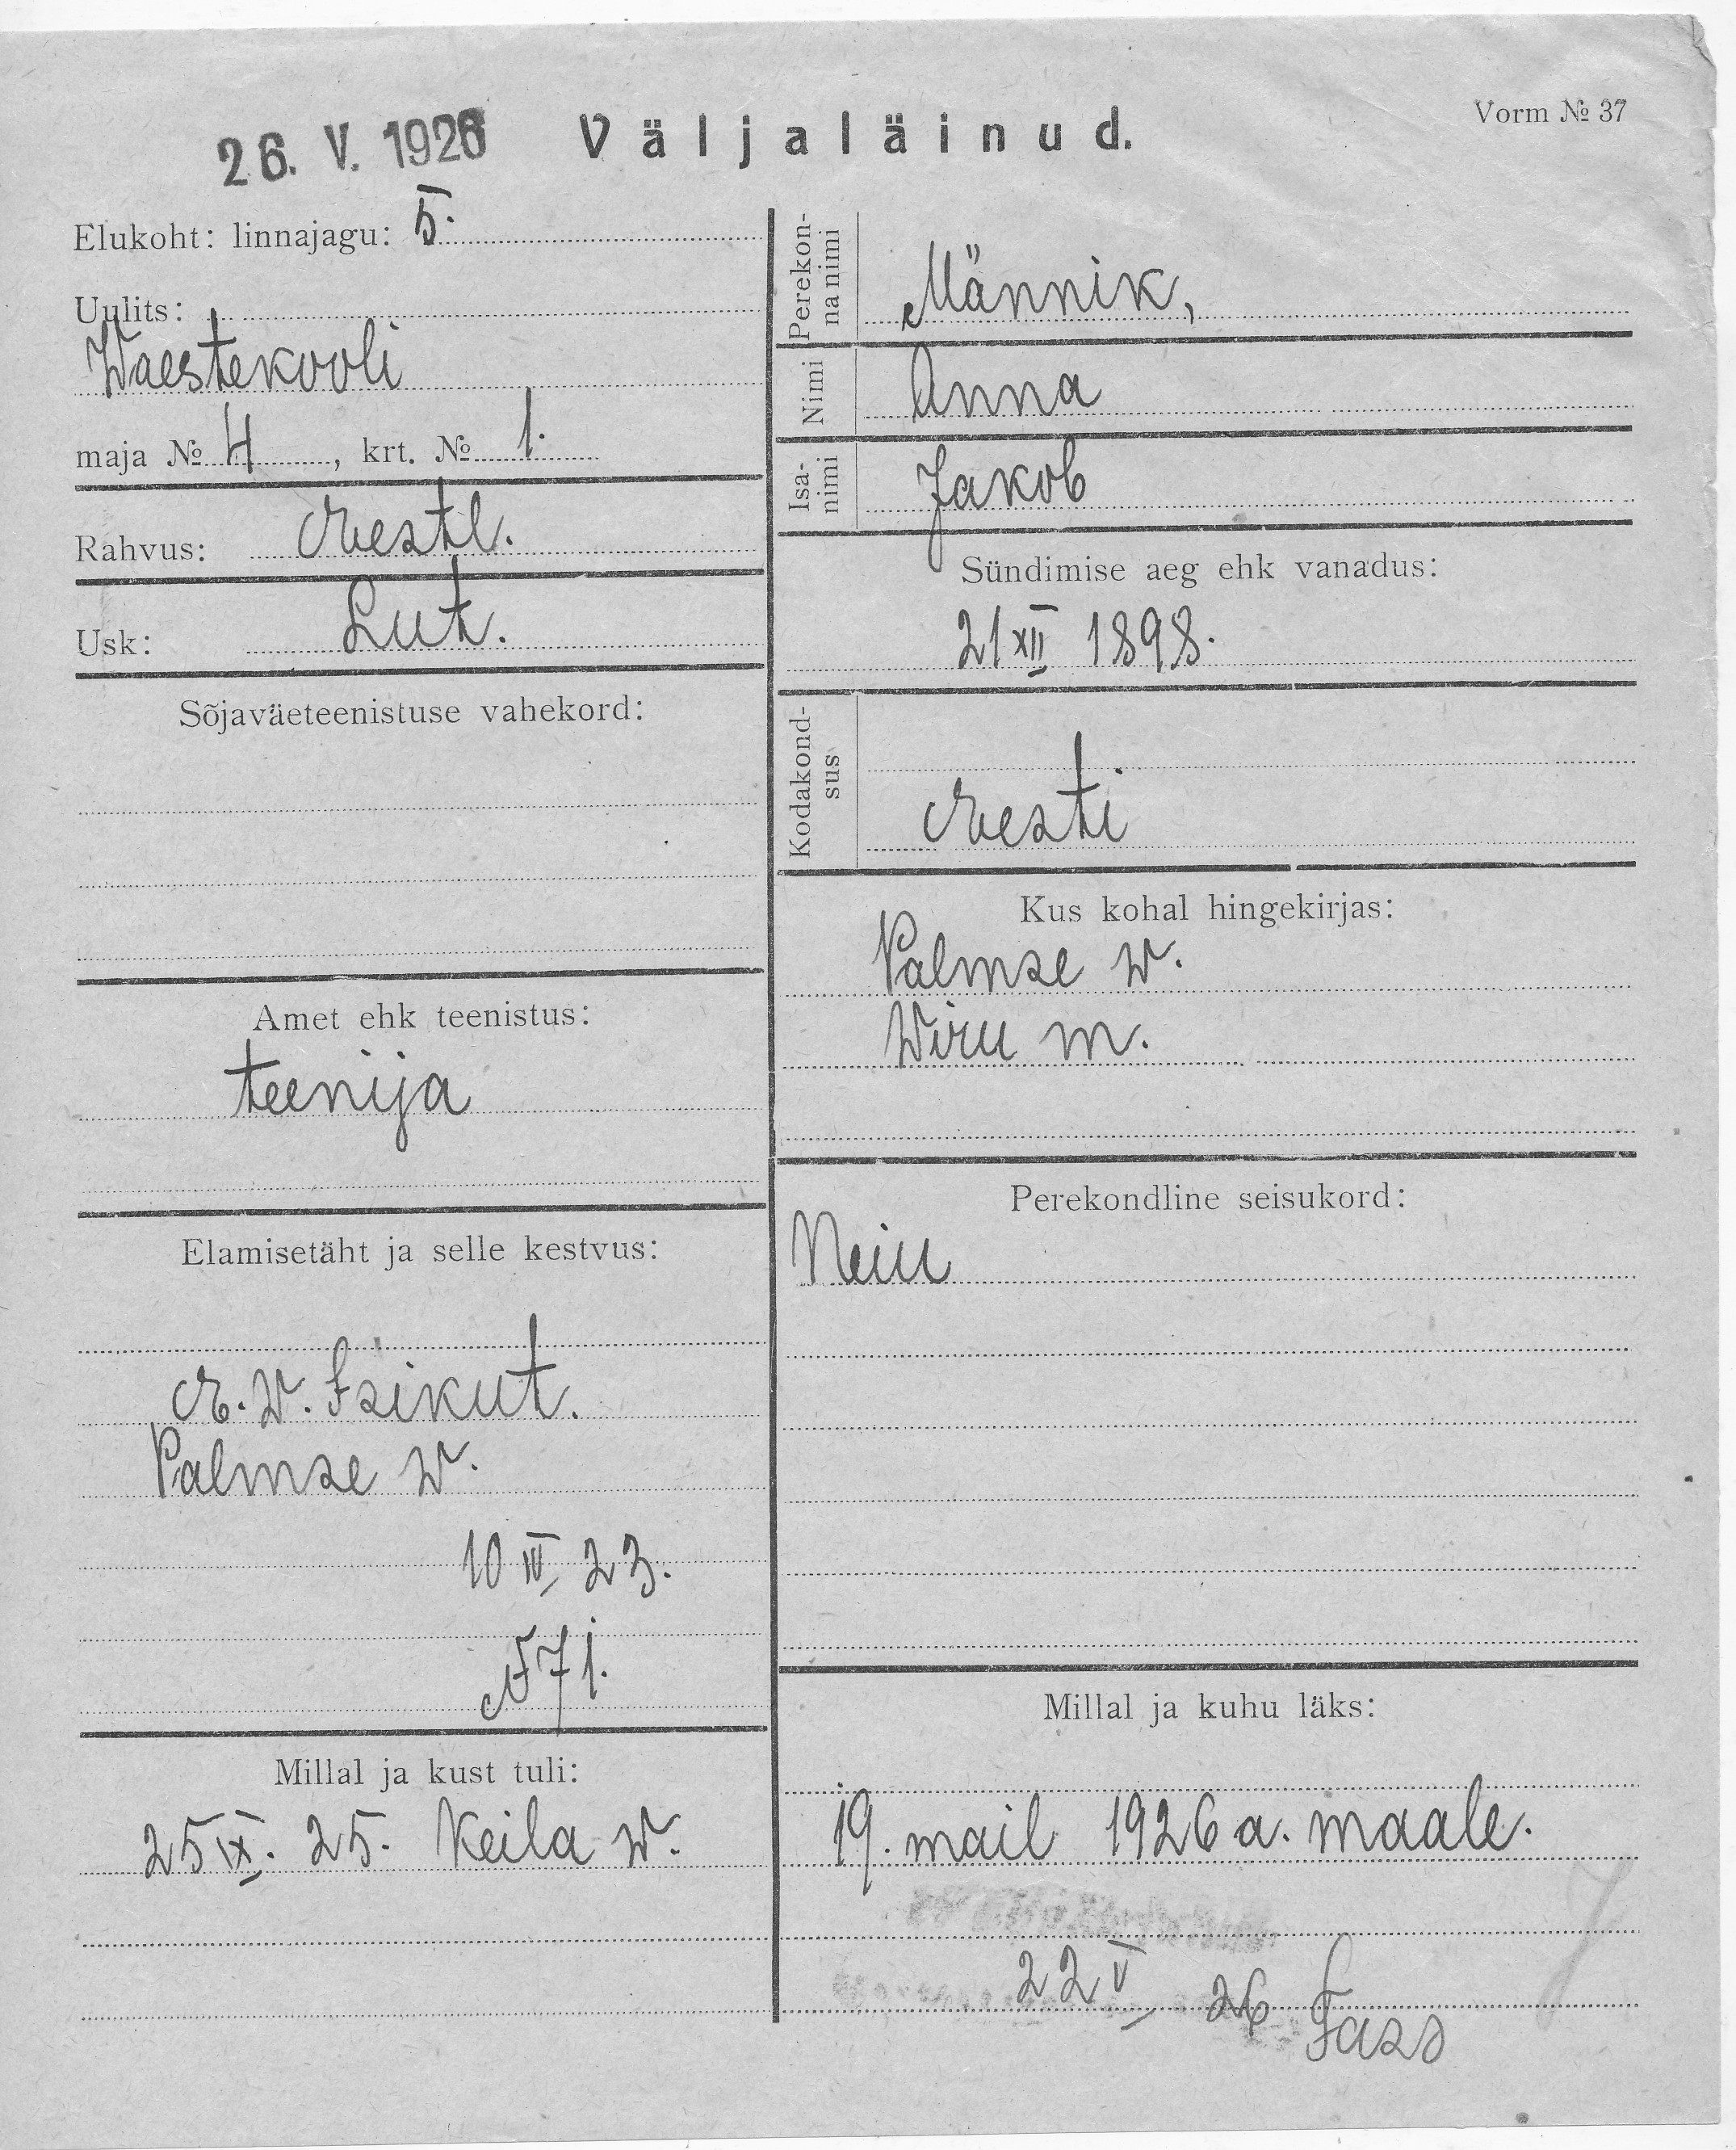 Vorm № 37
26. V. 1926
Väljaläinud.
Elukoht: linnajagu: 5.
Uulits:
Waestekooli
maja № 4, krt. № 1.
Rahvus: Eestl.
Usk: Lut.
Sõjaväeteenistuse vahekord:
Amet ehk teenistus:
teenija
Elamisetäht ja selle kestvus:
E. W. Isikut.
Palmse w.
10 IV 23.
N 71.
Millal ja kust tuli:
25 IX. 25. Keila w.
Perekon-
na nimi
Männik,
Nimi
Anna
Isa-
nimi
Jakob
Sündimise aeg ehk vanadus:
21 XII 1898.
Kodakond-
sus
Eesti
Kus kohal hingekirjas:
Palmse w.
Wiru m.
Perekondline seisukord:
Neiu
Millal ja kuhu läks:
19. mail 1926 a. maale.
22 V 26